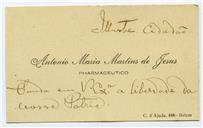 Illustre Cidadão
Antonio Maria Martins de Jesus
PHARMACEUTICO
Sauda em V. Exª a liberdade da
nossa Patria.
C. d'Ajuda, 168-Belem